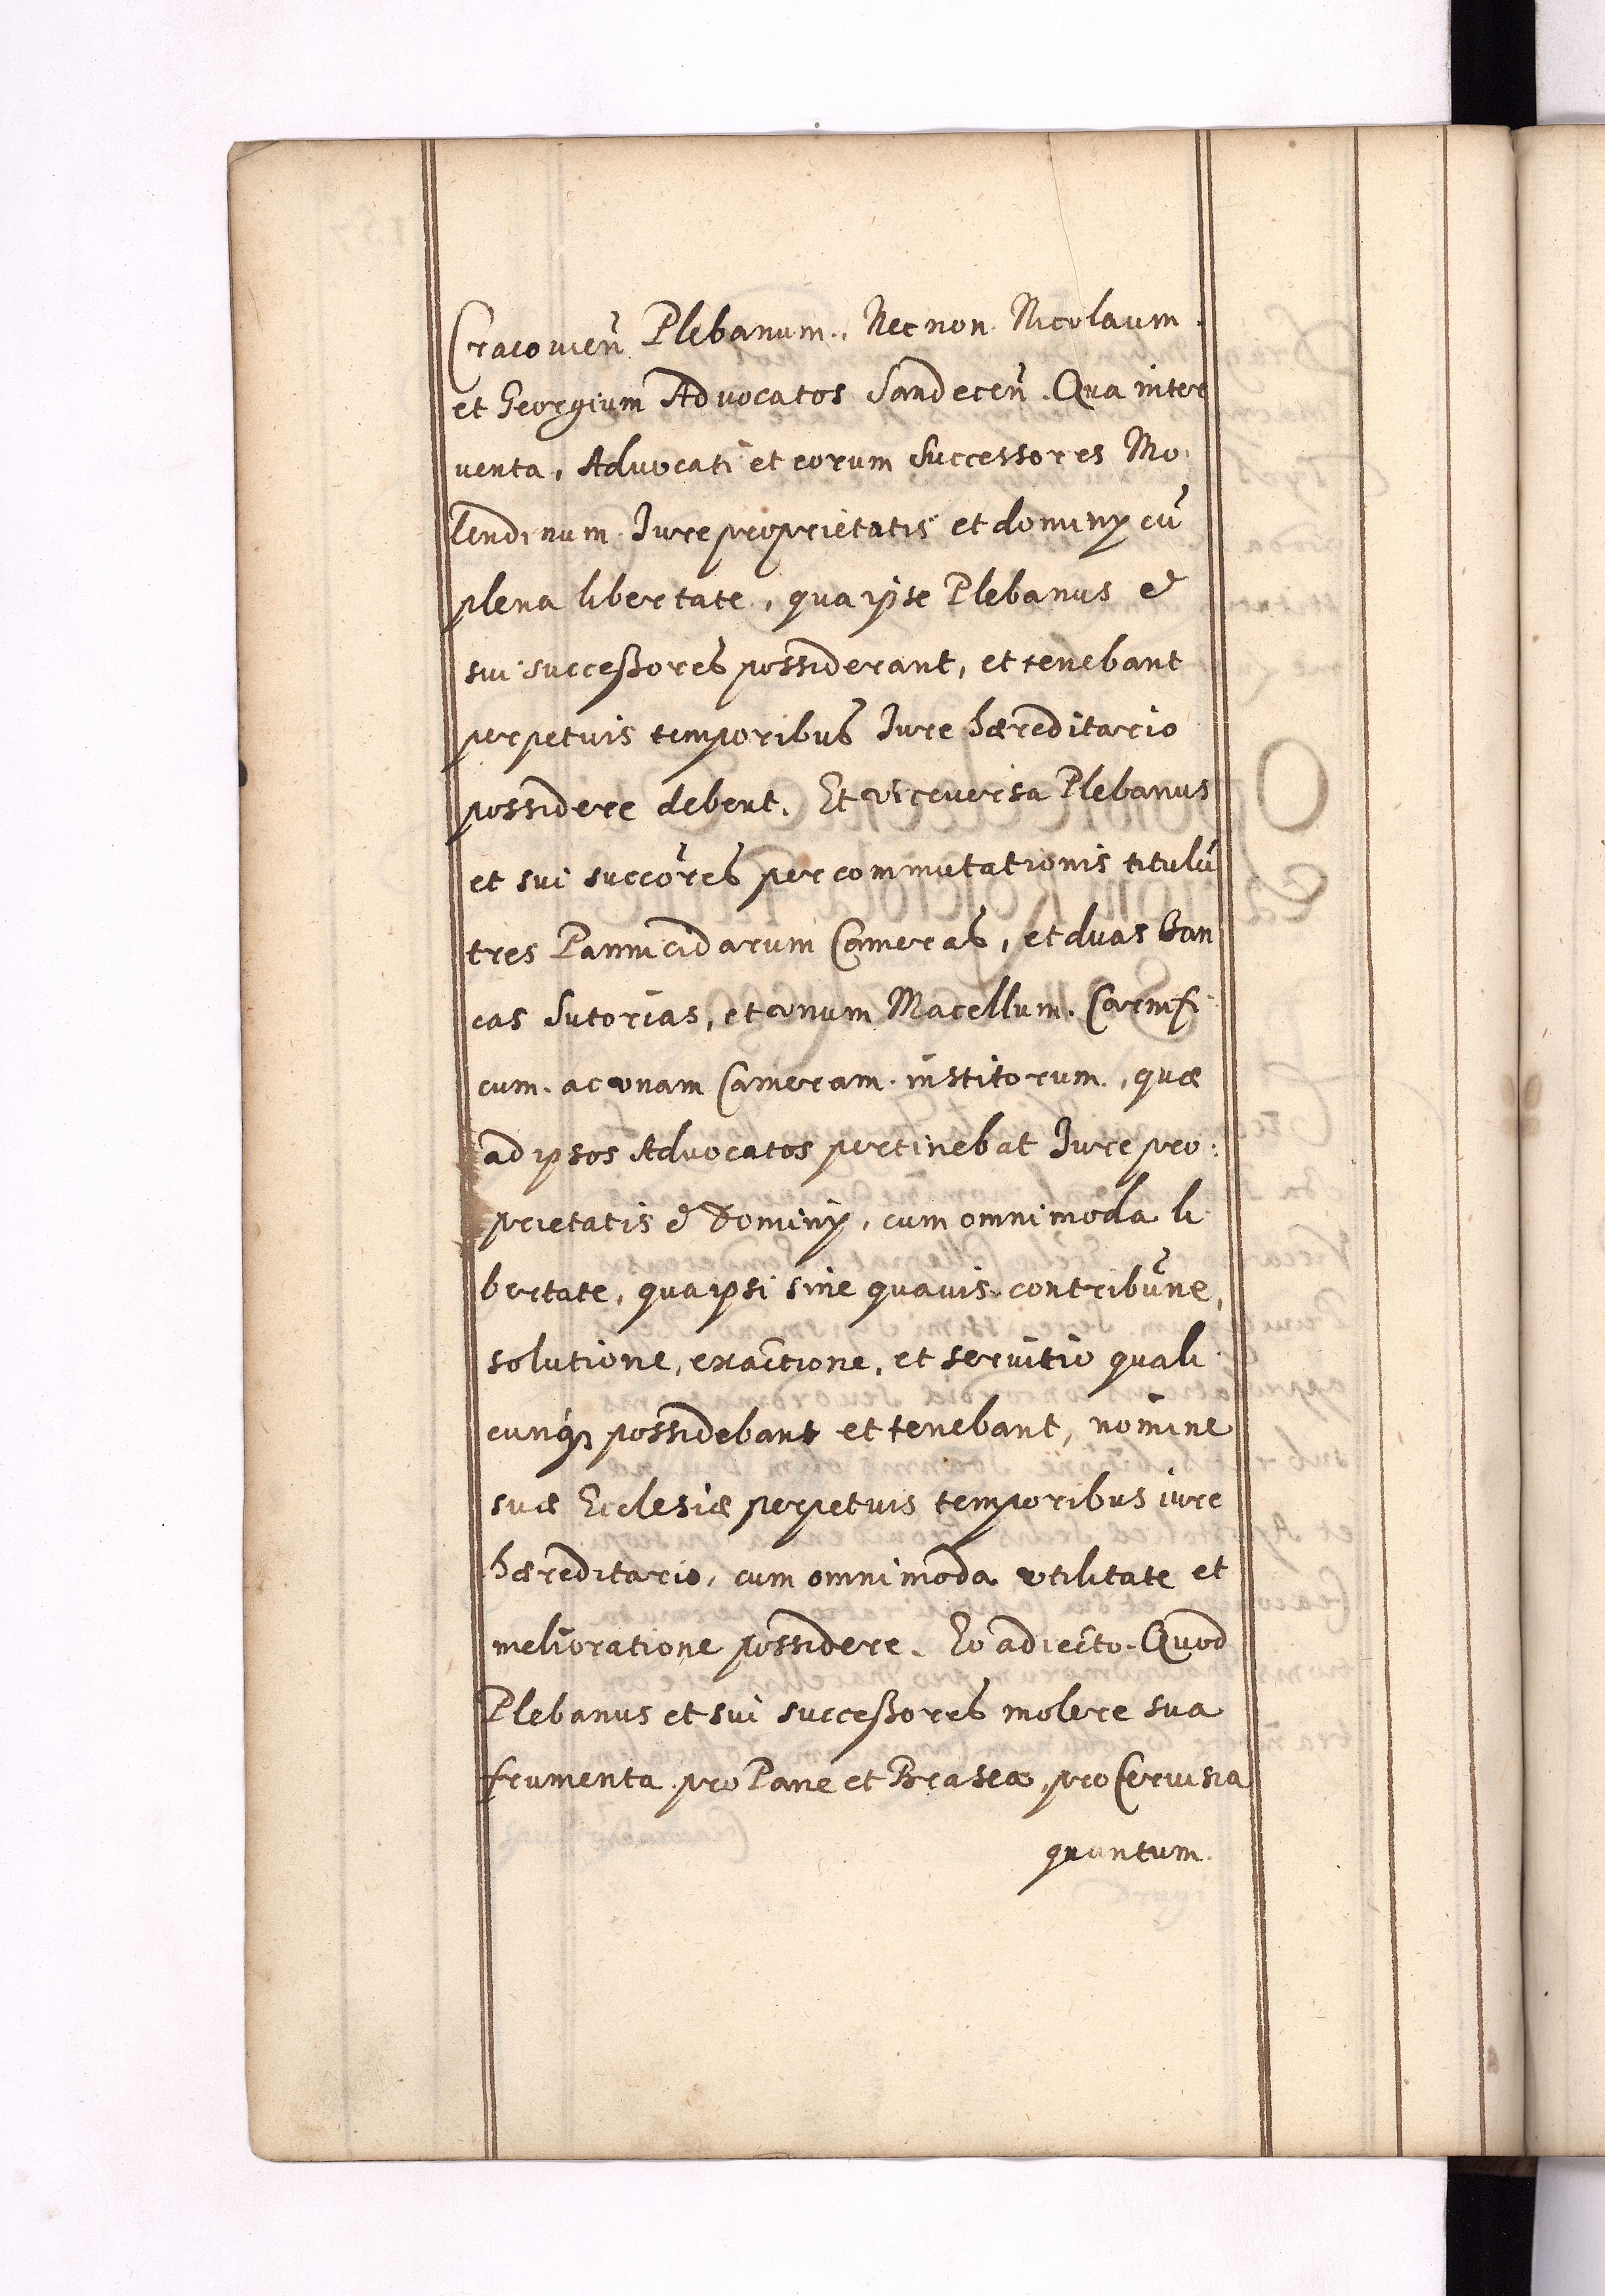 Cracovien̄ Plebanum. Nec non Nicolaum
et Georgium Advocatos Sandecen̄. Qua inter
venta, Advocati et eorum Successores Mo
lendinum Iure proprietatis et dominy cū
plena libertate, qua ipse Plebanus et
sui succeßores possiderant, et tenebant
perpetuis temporibus Iure hæreditario
possidere debent. Et viceversa Plebanus
et sui succōres per commutationis titulū
tres Pannicidarum Cameras, et duas Ban
cas Sutorias, et vnum Macellum Carnifi
cum ac vnam Cameram institorum, quæ
ad ipsos Advocatos pertinebat Iure pro:
prietatis et Dominy, cum omnimoda li
bertate, qua ipsi sine quavis contribūne,
solutione, exactione, et servitio quali
cunq3 possidebant et tenebant, nomine
suæ Ecclesiæ perpetuis temporibus iure
hæreditario, cum omnimoda vtilitate et
melioratione possidere. Eo adiecto. Quod
Plebanus et sui succeßores molere sua
frumenta pro Pane et Brasea, pro Cervisia
quantum